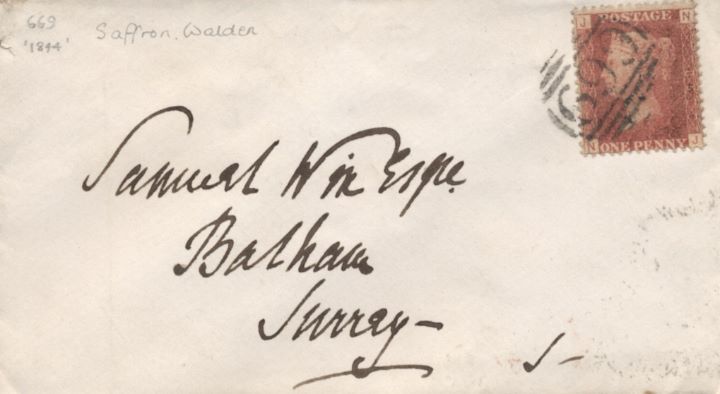 669
'1844'
Saffron. Walden
J POSTAGE N
N ONE PENNY J
693
Samuel Win Esqre
Balham
Surrey